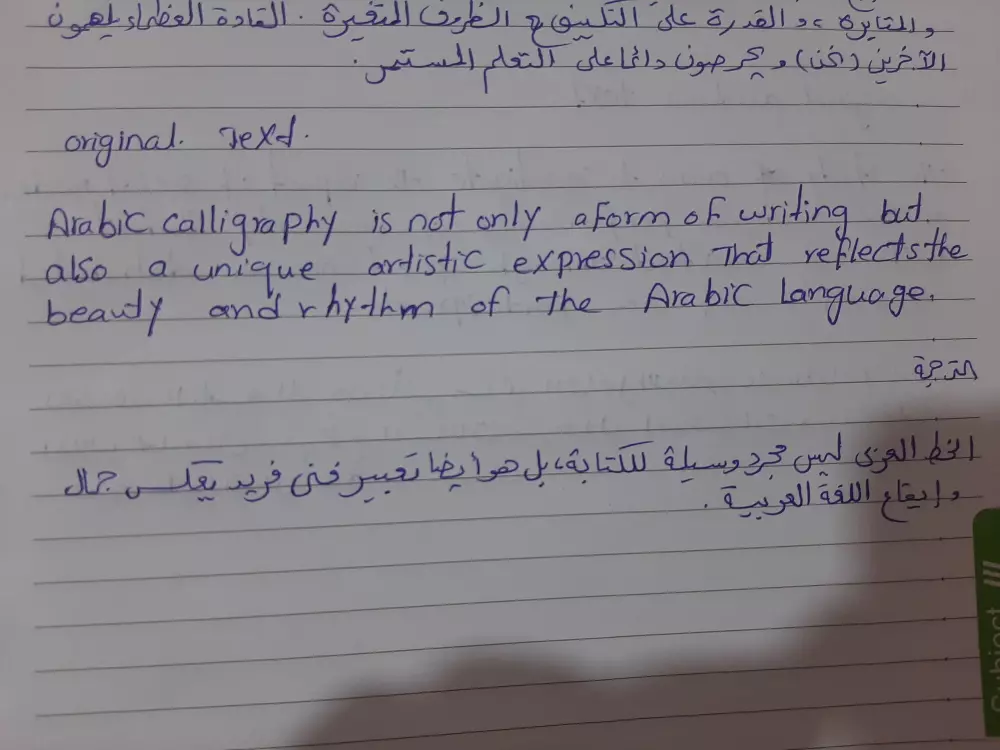 والمثابرة، والقدرة على التكيف مع الظروف المتغيرة. القادة العظماء يلهمون
الآخرين (نحن) ويحرصون دائما على التعلم المستمر.
original. Text.
Arabic calligraphy is not only a form of writing but
also a unique artistic expression That reflects the
beauty and rhythm of the Arabic Language.
الترجمة
الخط العربي ليس مجرد وسيلة للكتابة، بل هو ايضا تعبير فني فريد يعكس جمال
وإيقاع اللغة العربية.
Subject